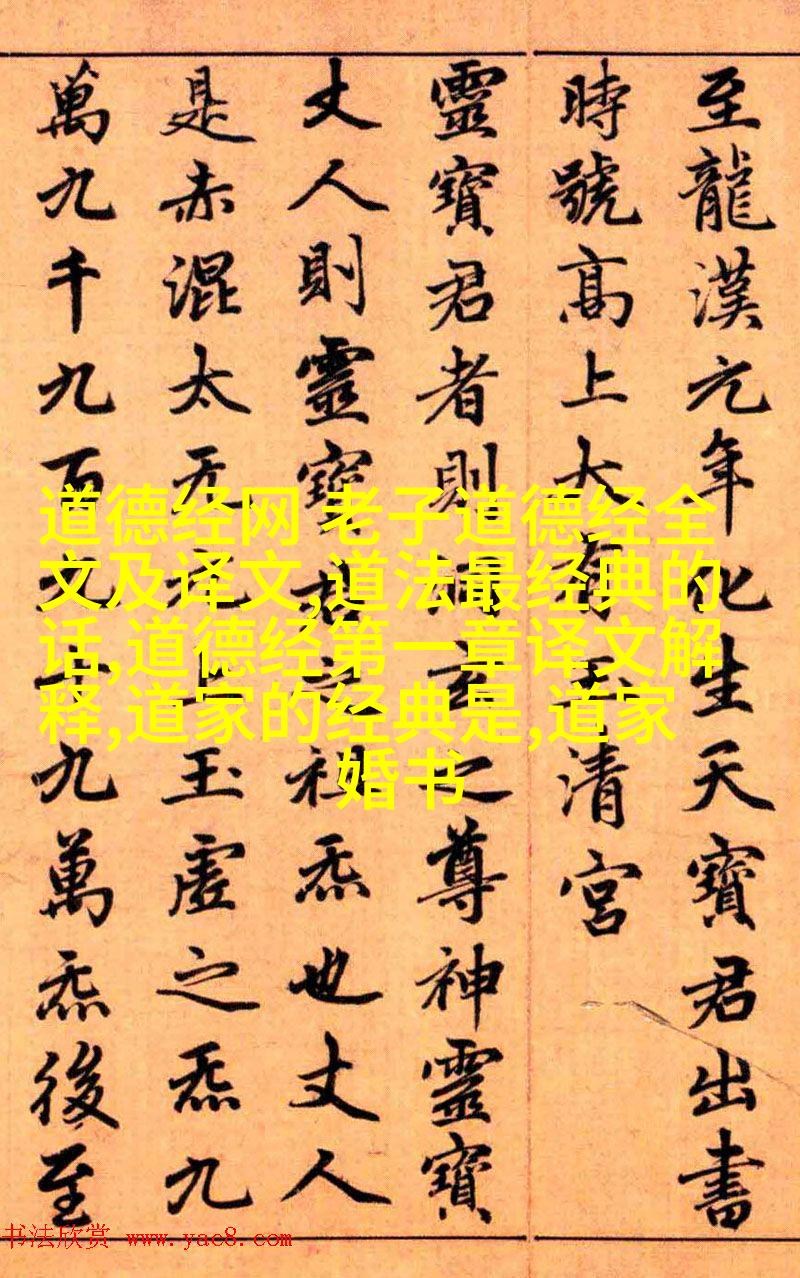 至龍漢元年化生天寶君出書
時號高上大有玉清宮
靈寶君者則洞玄之尊神靈寶
丈人則靈寶君之祖炁也丈人
是赤混太无元上玉虛之炁九
萬九千九百九十九萬炁後至
道德经网 老子道德经全
文及译文,道法最经典的
话,道德经第一章译文解
释,道家的经典是,道家
婚书
书法欣赏 www.yac8.com